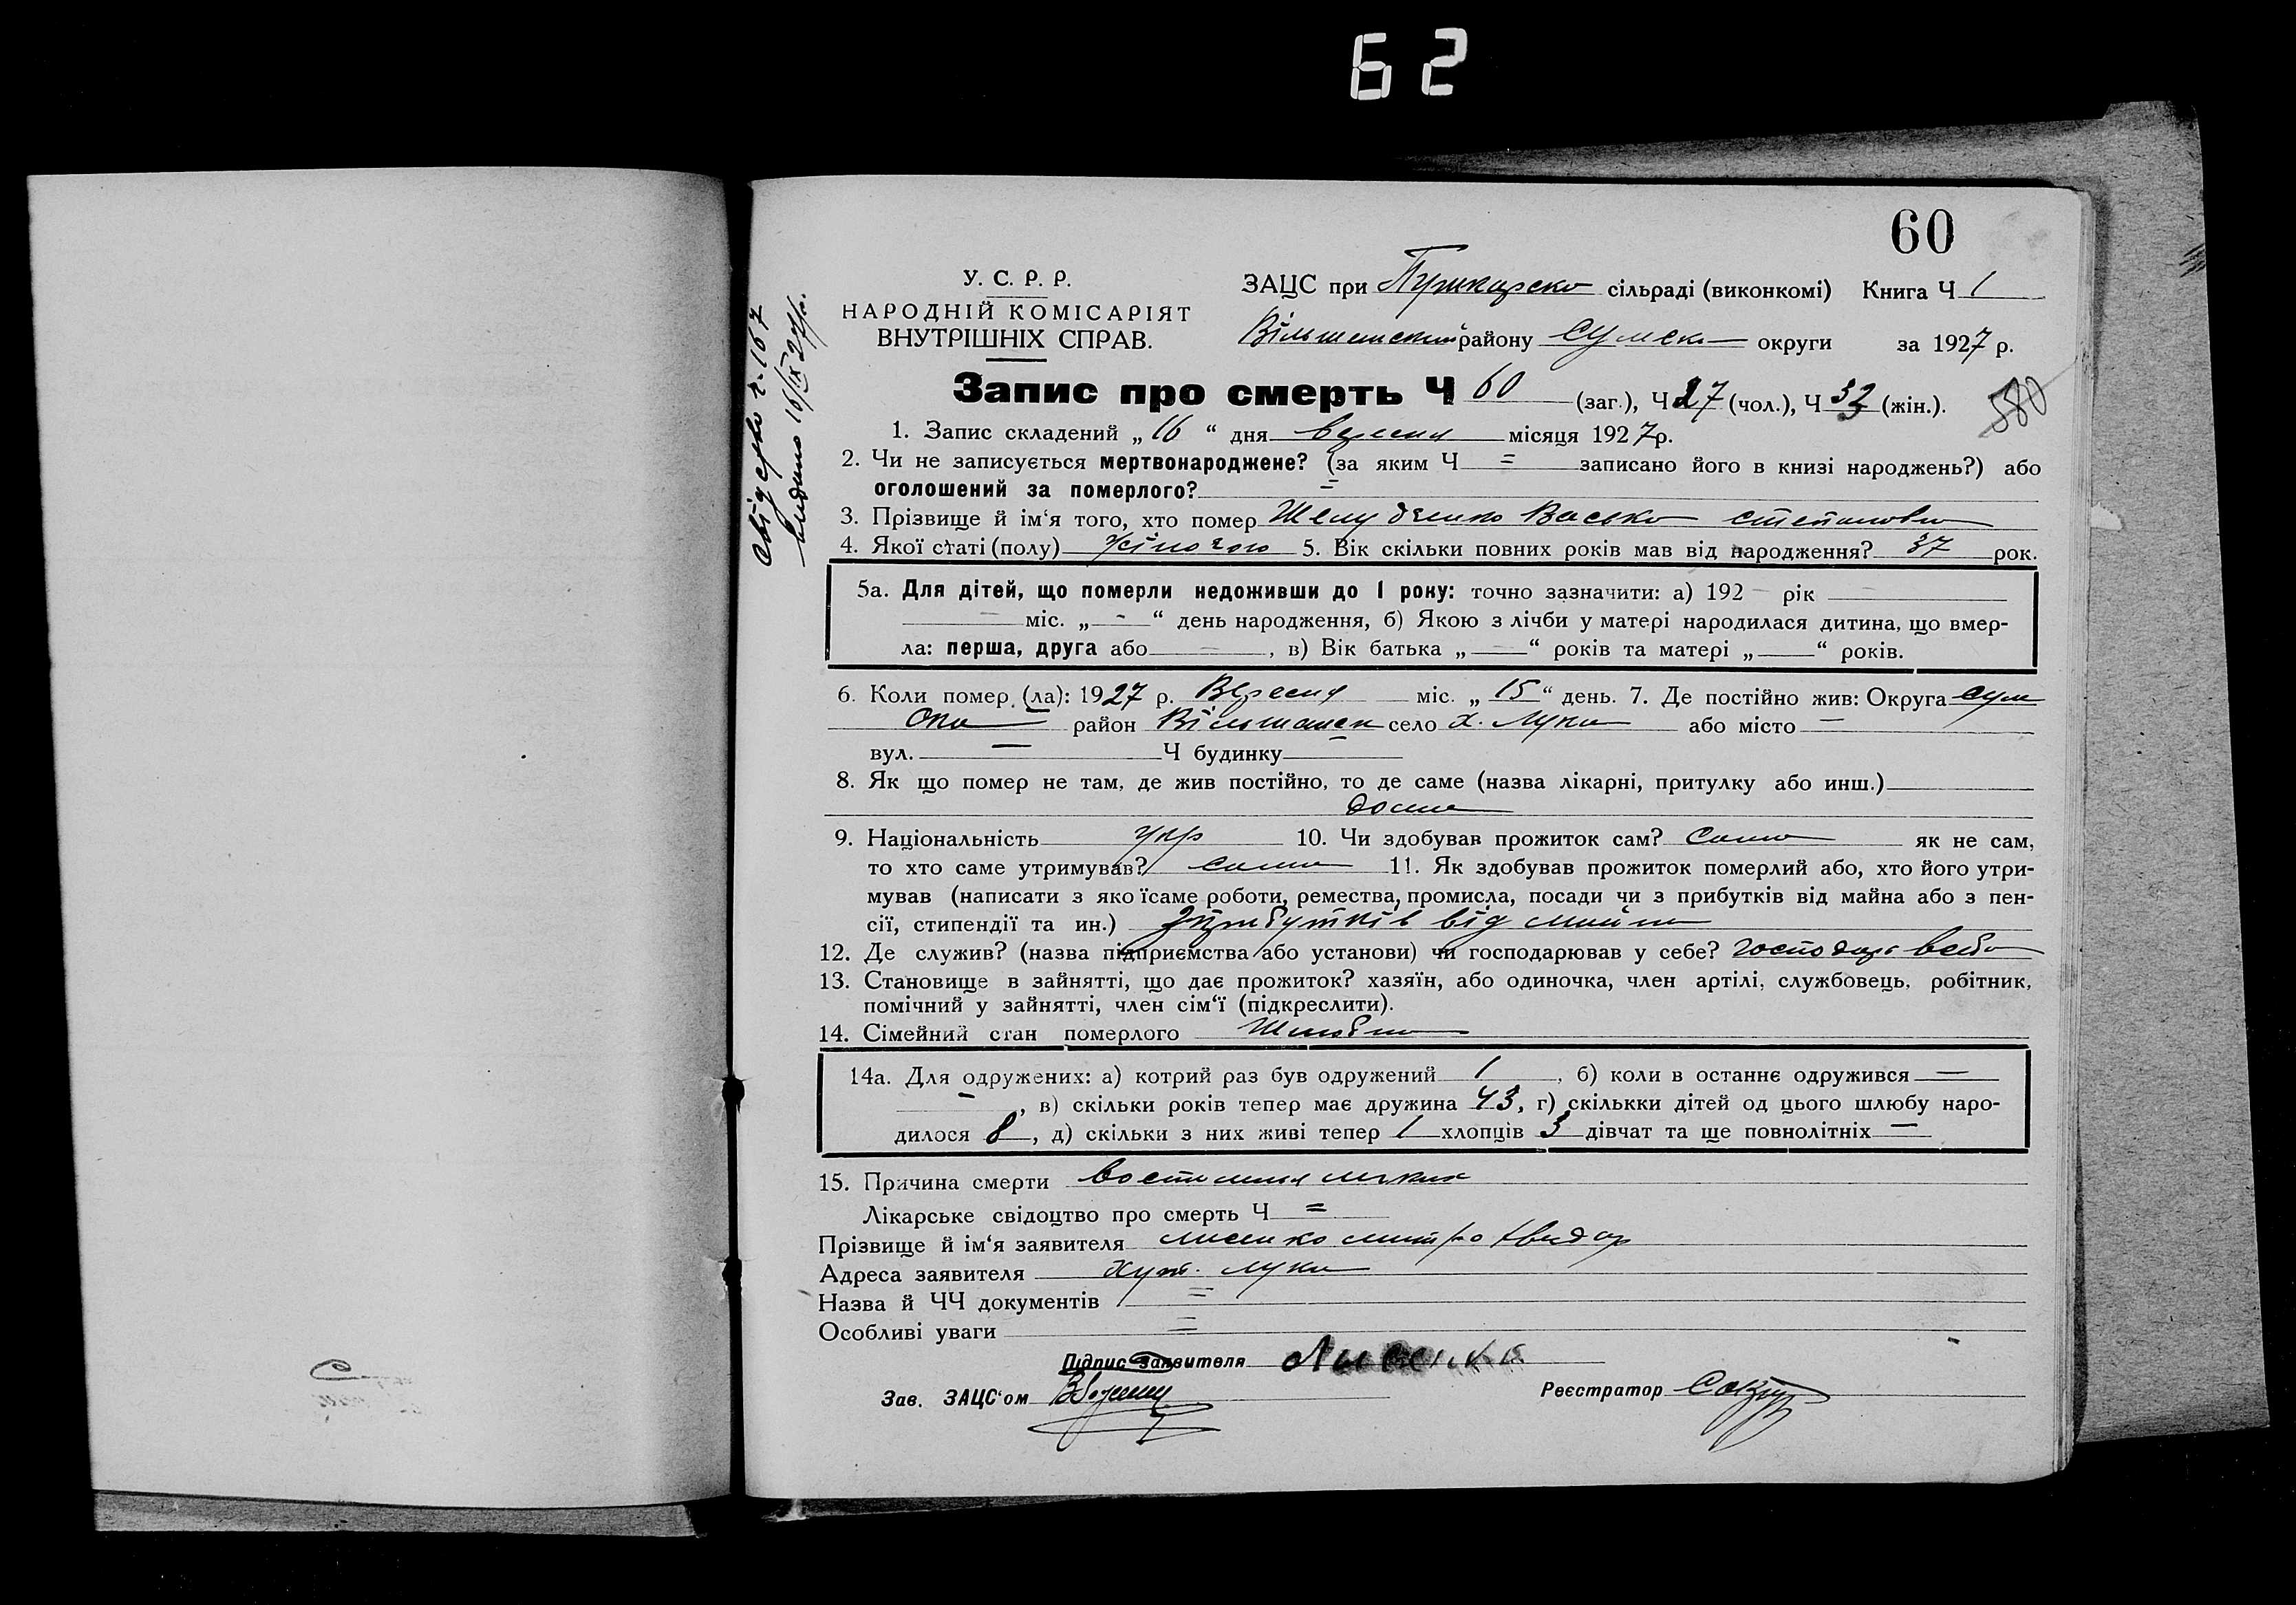 62
60
У. С. Р. Р.
НАРОДНІЙ КОМІСАРІЯТ
ВНУТРІШНІХ СПРАВ.
ЗАЦС при Пушкарско сільраді (виконкомі) Книга Ч 1
району Сумско округи за 1927 р.
Запис про смерть Ч 60 (заг.), Ч 27 (чол.), Ч (жін.).
580
1. Запис складений „ 16 “ дня вересня місяця 1927 р.
2. Чи не записується мертвонароджене? (за яким Ч = записано його в книзі народжень?) або
оголошений за померлого? =
3. Прізвище й ім‘я того, хто помер
4. Якої статі (полу) жіночого 5. Вік скільки повних років мав від народження? 37 рок.
5а. Для дітей, що померли недоживши до 1 року: точно зазначити: а) 192 – рік –
– міс. „ - “ день народження, б) Якою з лічби у матері народилася дитина, що вмер-
ла: перша, друга або –, в) Вік батька „ — “ років та матері „ — “ років.
6. Коли помер (ла): 1927 р. Вересня міс. „ 15 “ день. 7. Де постійно жив: Округа Сум
ска район Вільшанск село х. Лука або місто —
вул. — Ч будинку —
8. Як що помер не там, де жив постійно, то де саме (назва лікарні, притулку або инш.)
дома
9. Національність укр 10. Чи здобував прожиток сам? Сама як не сам,
то хто саме утримував? сама 11. Як здобував прожиток померлий або, хто його утри-
мував (написати з якоїсаме роботи, ремества, промисла, посади чи з прибутків від майна або з пен-
сії, стипендії та ин.) Зприбутків від майна
12. Де служив? (назва підприємства або установи) чи господарював у себе?
13. Становище в зайнятті, що дає прожиток? хазяїн, або одиночка, член артілі, службовець, робітник,
помічний у зайнятті, член сім‘ї (підкреслити).
14. Сімейний стан померлого Шлюбна
14а. Для одружених: а) котрий раз був одружений 1, б) коли в останнє одружився —
-, в) скільки років тепер має дружина 43, г) скількки дітей од цього шлюбу наро-
дилося 8, д) скільки з них живі тепер 1 хлопців 3 дівчат та ще повнолітніх —
15. Причина смерти
Лікарське свідоцтво про смерть Ч =
Прізвище й ім‘я заявителя
Адреса заявителя Хут. Лука
Назва й ЧЧ документів =
Особливі уваги =
Підпис заявителя Лисенко
Зав. ЗАЦС‘ом
Реєстратор